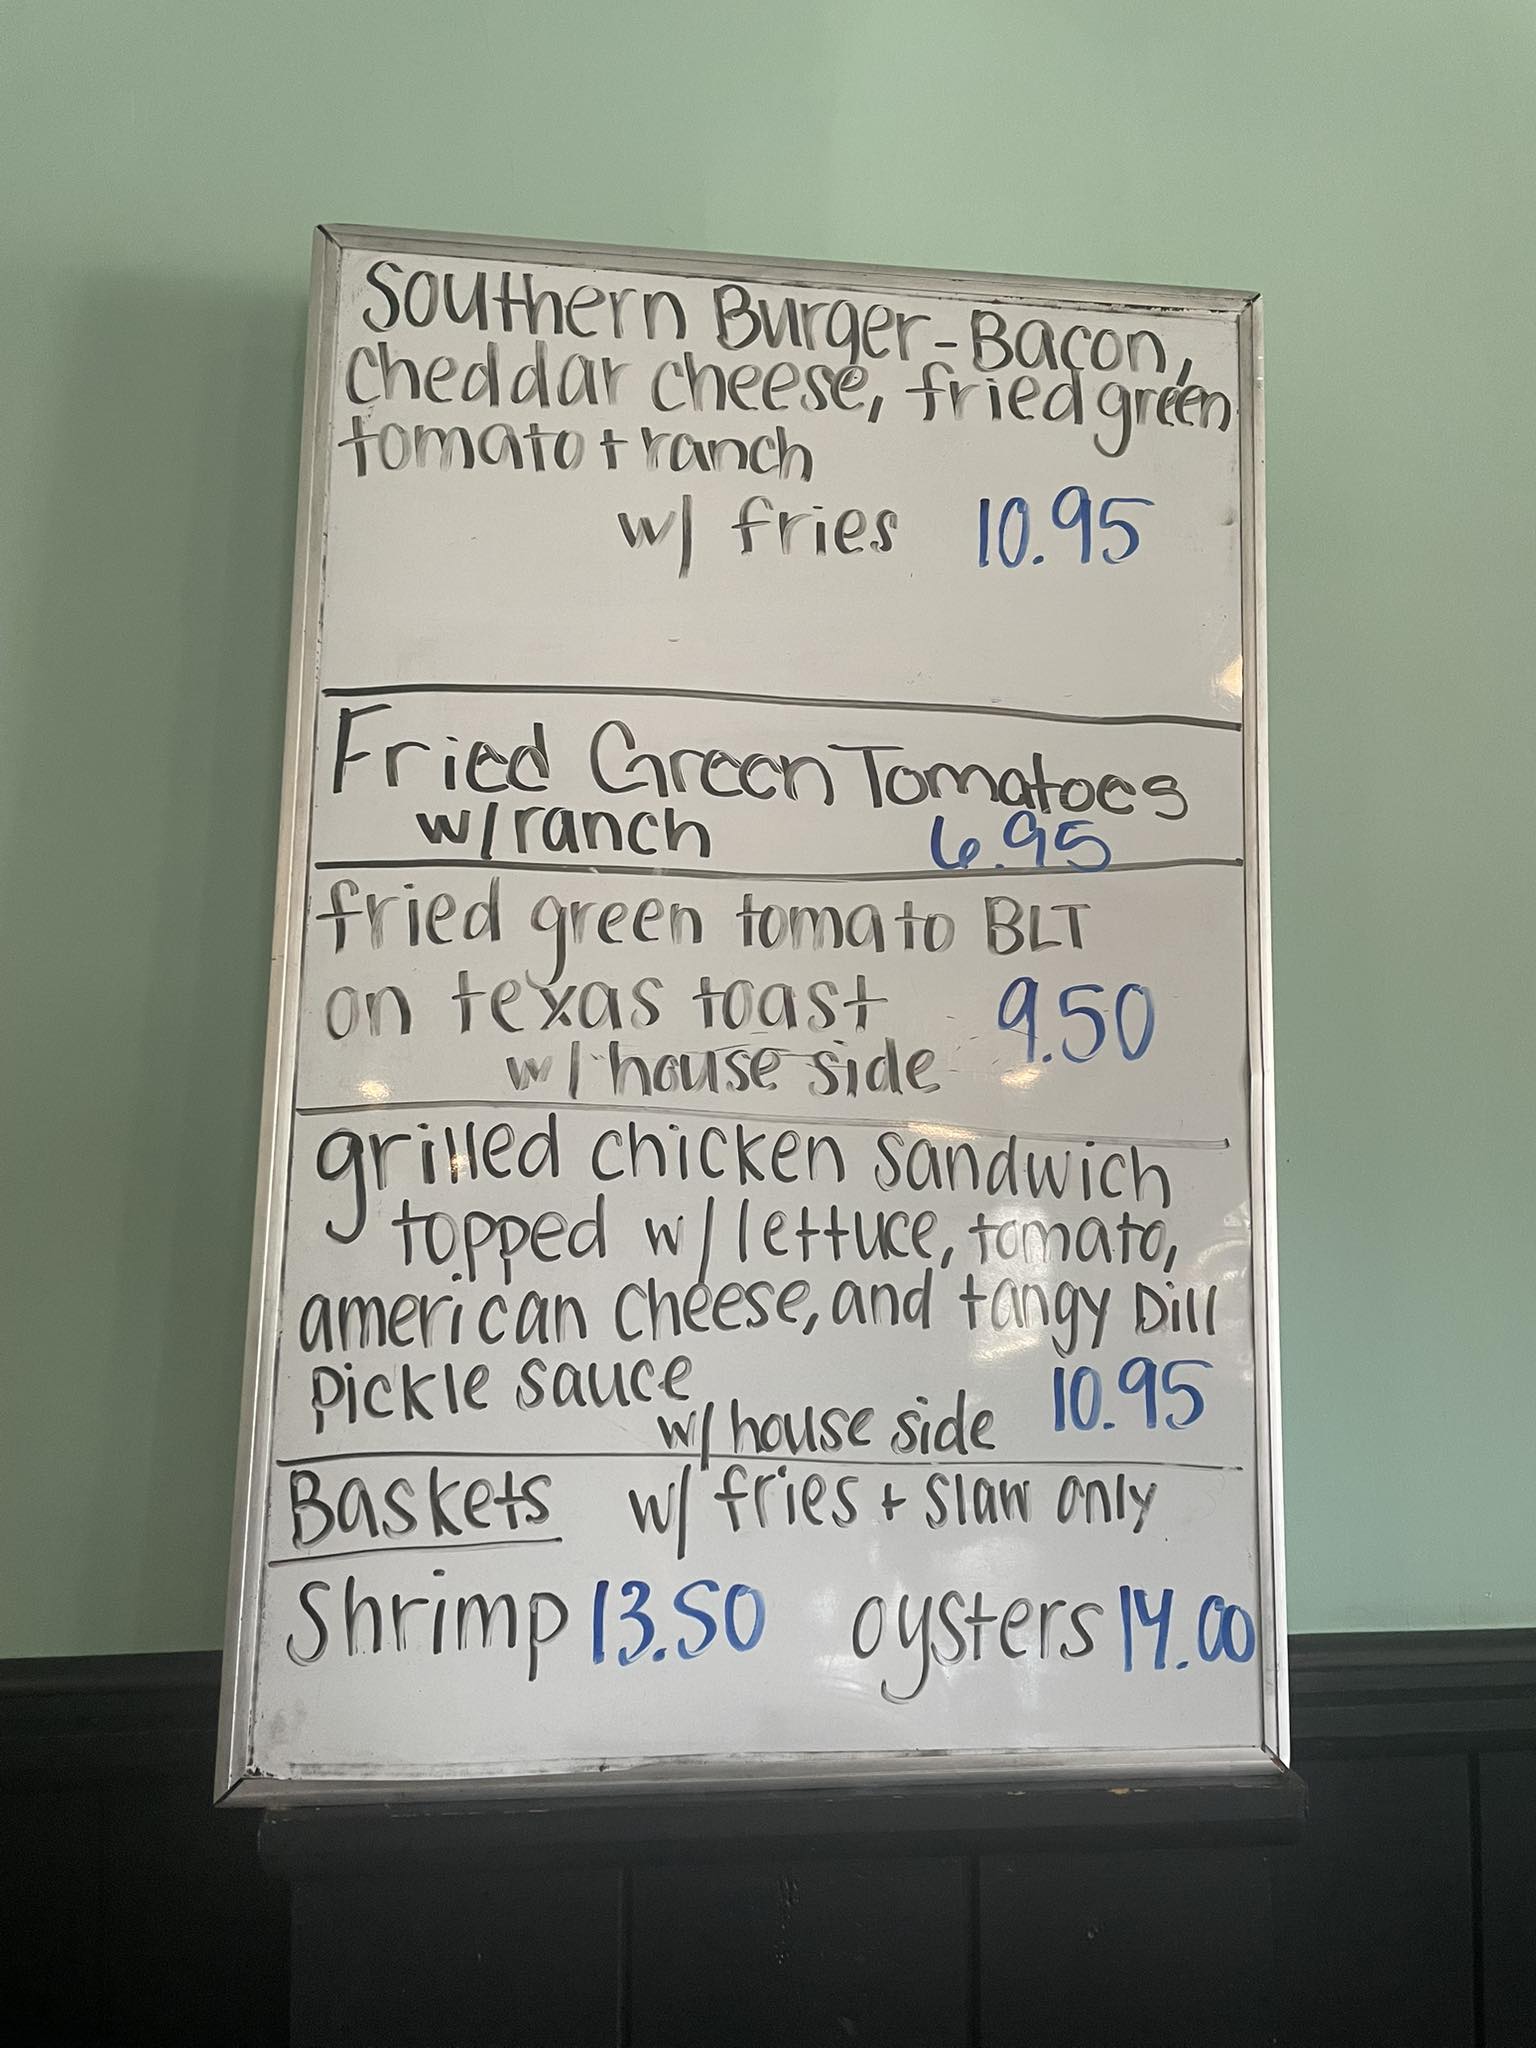 Southern Burger-Bacon,
cheddar cheese, fried green
tomato + ranch
w/ fries 10.95
Fried Green Tomatoes
w/ranch 6.95
fried green tomato BLT
on texas toast 9.50
w/ house side
grilled chicken sandwich
topped w/ lettuce, tomato,
american cheese, and tangy Dill
pickle sauce
w/ house side 10.95
Baskets w/ fries + slaw only
Shrimp 13.50 oysters 14.00